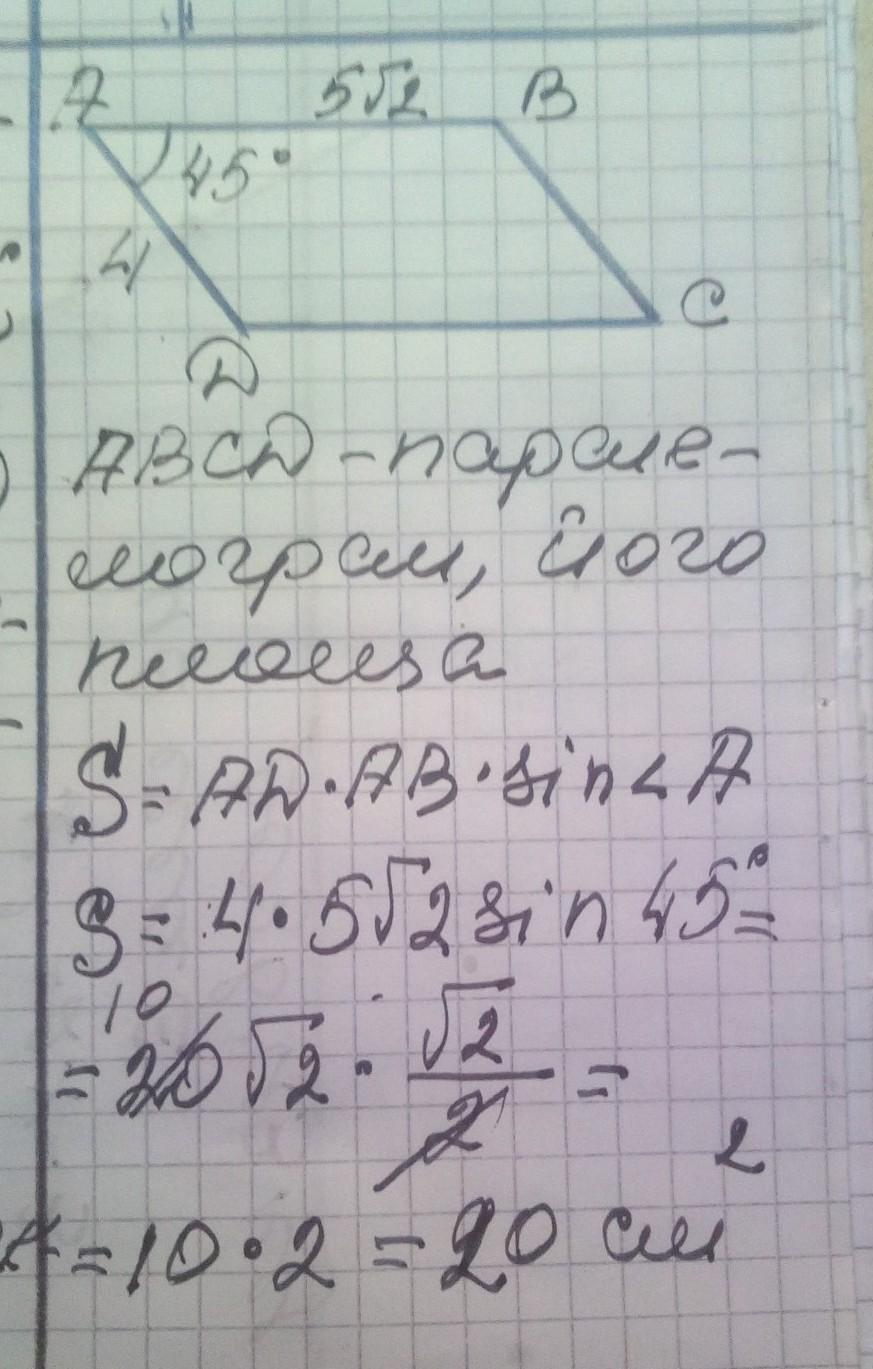 A 5√2 B
45°
4
C
D
ABCD - парале-
лограм, його
площа
S = AD · AB · sin < A
S = 4 · 5√2 sin 45° =
10
= 20√2 · √2/2 =
= 10 · 2 = 20 см²